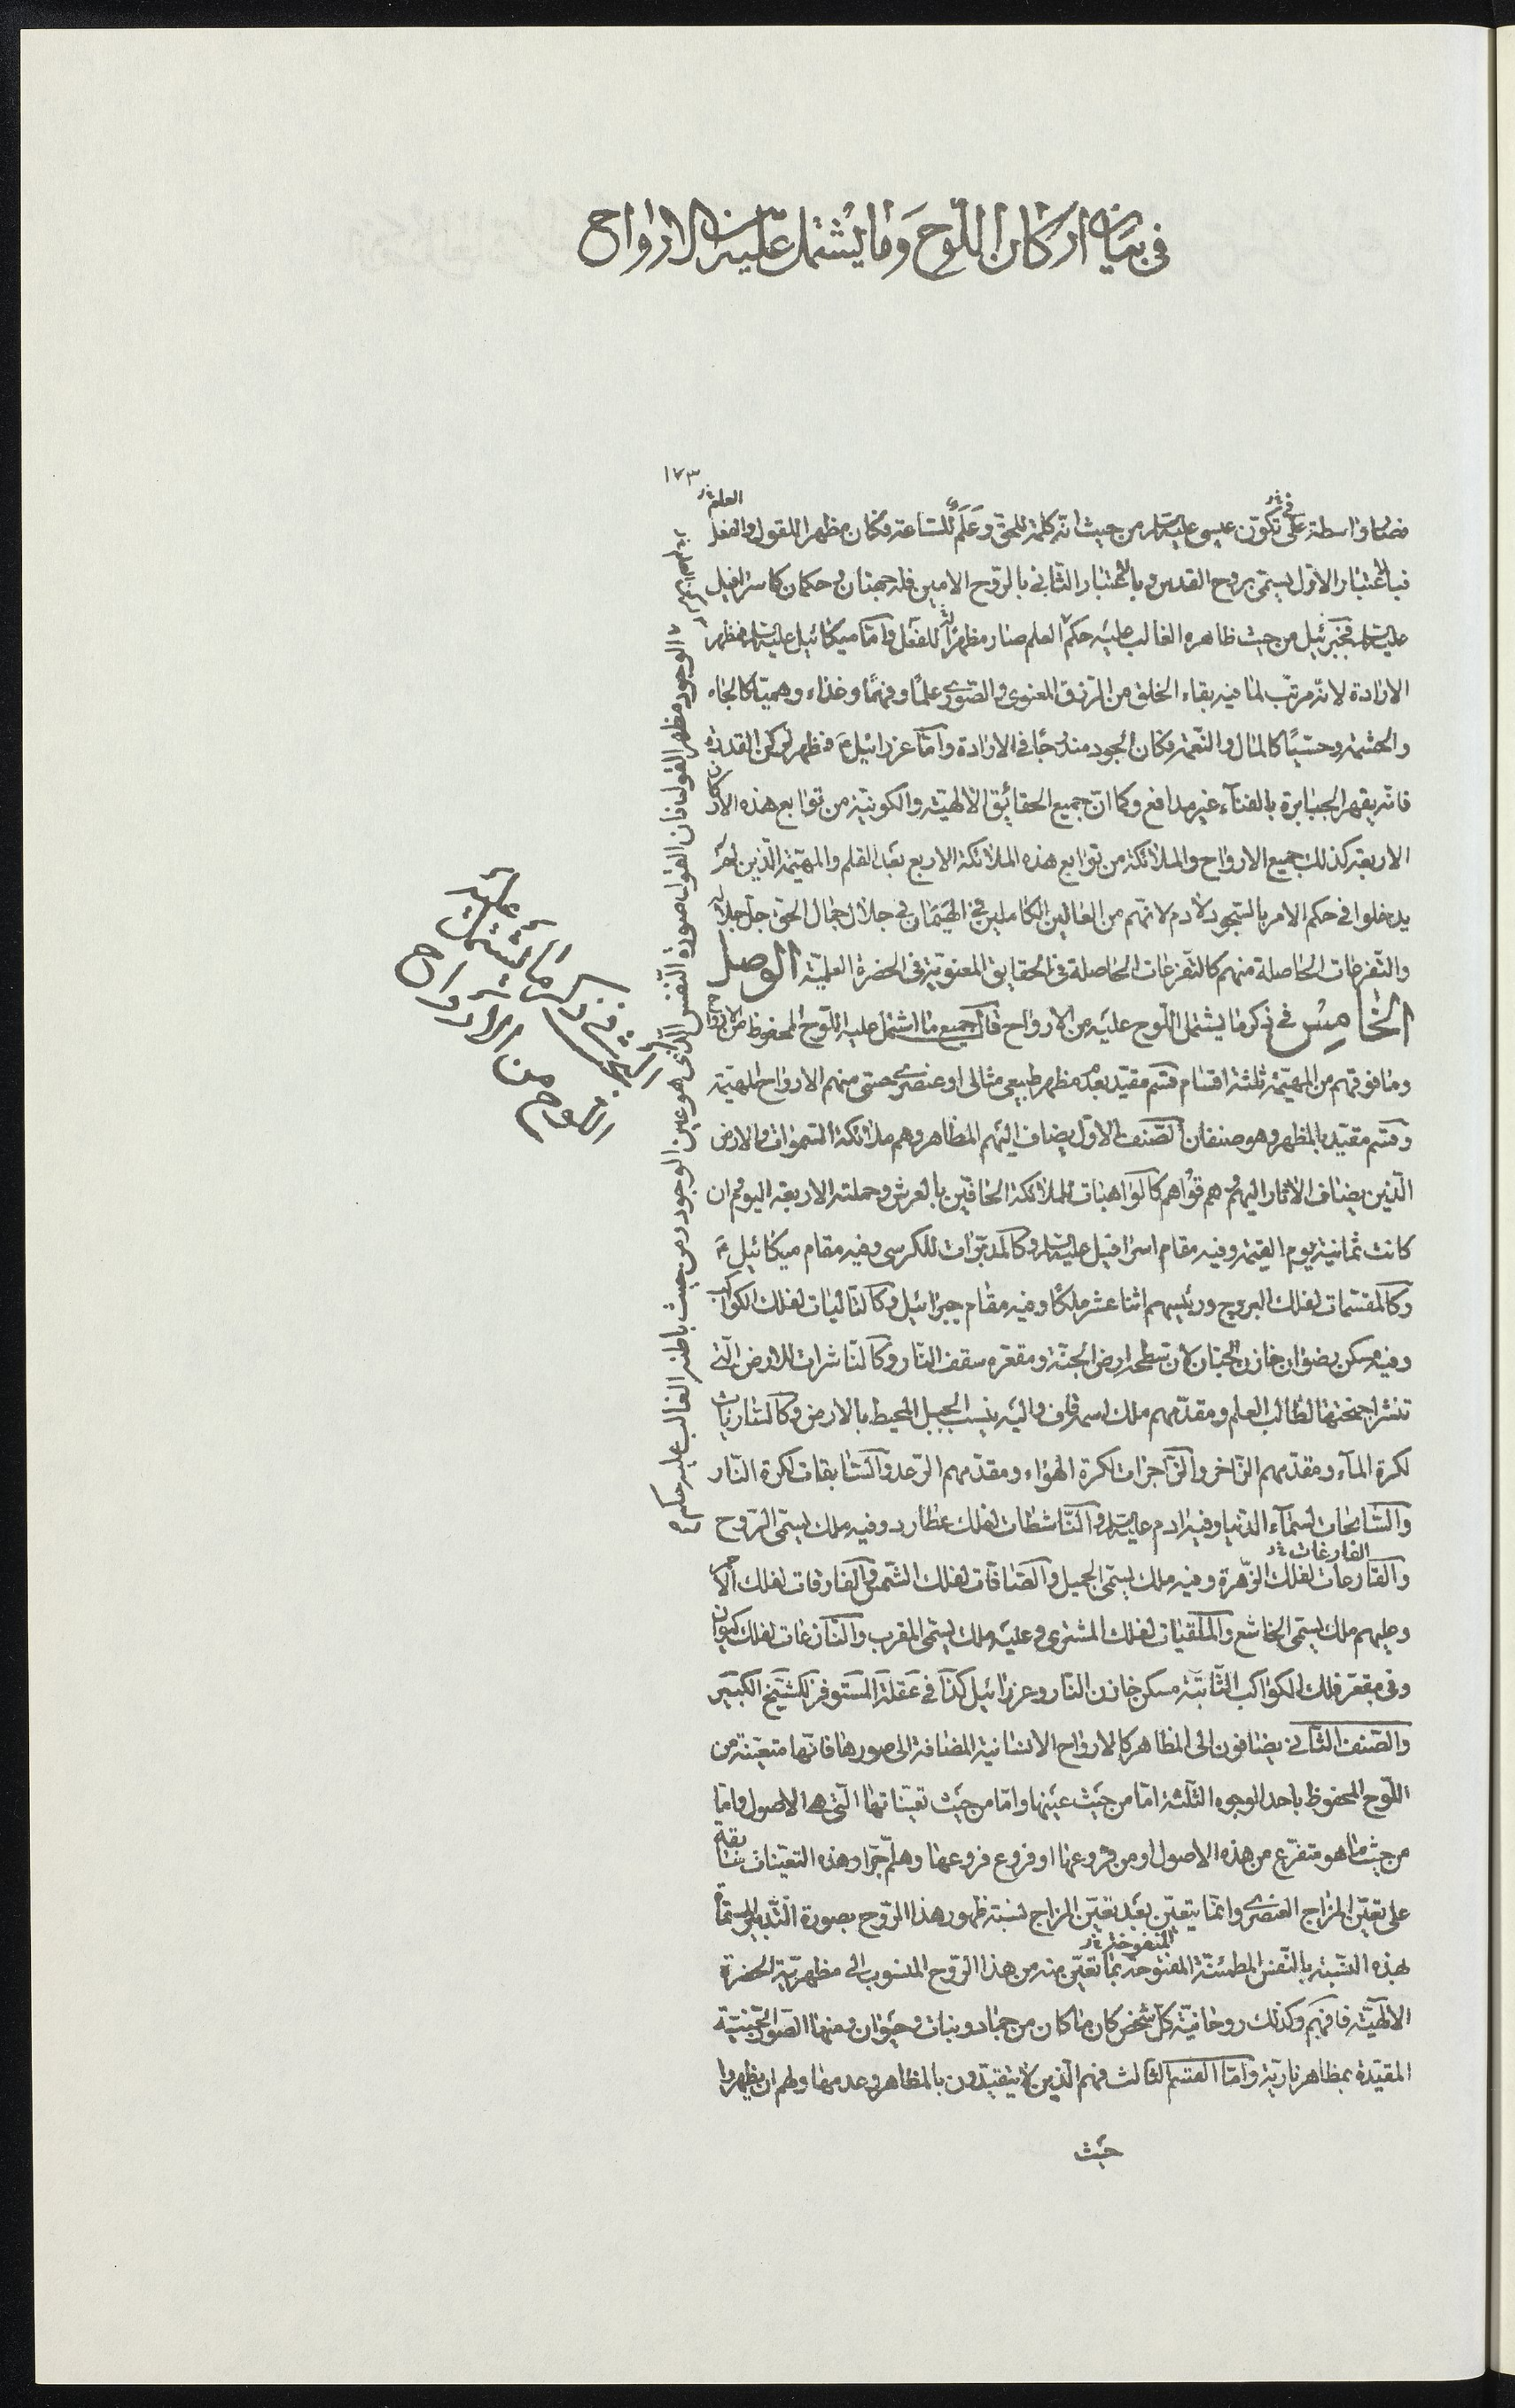 في بيان اركان اللّوح وَما يشتمل عليه من الارواح
١٧٣
العلم خ
في خ
فصار واسطة على تكوّن عيسى عليه السلام من حيث انّه كلمة للحق وَعَلَمٌ للسّاعة فكان مظهرا للقول والفعل
فبالاعتبار الاوّل يسمّى بروح القدس وبالاعتبار الثّاني بالرّوح الامين فله جهتان وحكمان كاسرافيل
عليه السلام فجبرئيل من حيث ظاهره الغالب عليه حكم العلم صار مظهرًا للفعل وامّا ميكائيل عليه السلام فمظهر
الارادة لانّه مرتّب لما فيه بقاء الخلق من الرّزق المعنوي والصّوري علمًا وفهمًا وغذاء وهميّا كالجاه
والحشمة وحسّيّا كالمال والنّعمة فكان الجود مندرجًا في الارادة وامّا عزرائيل ع فمظهر لركن القدرة
فانّه يقهر الجبابرة بالفناء غير مدافع وكما انّ جميع الحقائق الالهيّة والكونيّة من توابع هذه الاركان
الاربعة كذلك جميع الارواح والملائكة من توابع هذه الملائكة الاربع بعد القلم والمهيّمة الّذين لم
يدخلوا في حكم الامر بالسّجود لادم لانّهم من العالين الكاملين في الهيمان في جلال جمال الحق جلّ جلاله
والتّفرعات الحاصلة منهم كالتّفرّعات الحاصلة في الحقايق المعنويّة في الحضرة العلميّة الوصل
الخامِسُ في ذكر ما يشتمل اللّوح عليه من الارواح قال جميع ما اشتمل عليه اللّوح المحفوظ من الارواح
وما فوقهم من المهيّمة ثلثة اقسام قسم مقيّد بعدم مظهر طبيعي مثالي او عنصري حسّي منهم الارواح المهيّمة
وقسم مقيّد بالمظهر وهو صنفان الصّنف الاوّل يضاف اليهم المظاهر وهم ملائكة السّموات والارض
الّذين يضاف الاثار اليهم وهم قوّاهم كالواهبات للملائكة الحافّين بالعرش وحملته الاربعة اليوم وان
كانت ثمانية يوم القيمة وفيه مقام اسرافيل عليه السلام وكالمدبّرات للكرسي وفيه مقام ميكائيل ع
وكالمقسّمات لفلك البروج ورئيسهم اثنا عشر ملكًا وفيه مقام جبرائيل وكالتّاليات لفلك الكواكب
وفيه مسكن رضوان خازن الجنان لان سطحه ارض الجنّة ومقعّره سقف النّار وكالنّاشرات للارض الّتي
تنشر اجنحتها لطالب العلم ومقدّمهم ملك اسمه قاف واليه ينسب الجبل المحيط بالارض وكالسّاريات
لكرة الماء ومقدّمهم الزّاخر والزّاجرات لكرة الهواء ومقدّمهم الرّعد والسّابقات لكرة النّار
والسّابحات لسماء الدّنيا وفيه ادم عليه السلام والنّاشطات لفلك عطارد وفيه ملك يسمّى الرّوح
الفارغات خ
والقارعات لفلك الزّهرة وفيه ملك يسمّى الجميل والصّافّات لفلك الشّمس والفارقات لفلك الاحمر
وعليهم ملك يسمّى الخاشع والملقيات لفلك المشتري وعليه ملك يسمّى المقرب والنّازعات لفلك كيوان
وفي مقعّر فلك الكواكب الثّابتة مسكن خازن النّار وعزرائيل كذا في عقلة المستوفز للشّيخ الكبير
والصّنف الثّاني يضافون الى المظاهر كالارواح الانسانية المضافة الى صورها فانّها متعيّنة من
اللّوح المحفوظ باحد الوجوه الثّلثة امّا من حيث عينها وامّا من حيث تعيّناتها الّتي هي الاصول وامّا
من حيث ما هو متفرّع من هذه الاصول او من فروعها او فروع فروعها وهلمّ جرّا وهذه التعيّنات سابقة
على تعيّن المزاج العنصري وانّما يتعيّن بعد تعيّن المزاج نسبة ظهور هذا الرّوح بصورة التّدبير المسمّاة
المنفوخة خ
بهذه النّسبة بالنّفس المطمئنّة المفتوحة بما تعيّن منه من هذا الرّوح المنسوب الى مظهريّته الحضرة
الالهيّة فافهم وكذلك روحانيّة كلّ شخص كان ما كان من جماد ونبات وحيوان ومنها الصّور الجنّيّة
المقيّدة بمظاهر ناريّة وامّا القسم الثالث فهم الّذين لا يتقيّدون بالمظاهر وعدمها ولهم ان يظهروا
حيث
الوجود مظهر القول فان القول صورة النّفس الّذي هو عين الوجود ومن حيث باطنه الغالب عليه حكم
في ذكر ما يشتمل عليه
اللّوح من الارواح